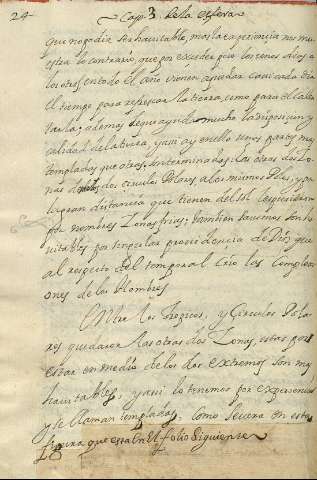 24
Cap. 3. de la esfera
que no podia ser havitable, mas la experiencia nos mu
estra lo contrario, que por exceder poco los unos dias a
los otros en todo el año vienen a quedar casi cada dia
el tiempo para refrescar la tierra, como para el calen
tarla; ademas de que ayuda mucho la disposicion y
calidad de la tierra, y assi ay en ello unas partes mas
templadas que otras, son terminadas las otras dos Zo
nas de los dos circulos Polares, a los mismos Polos, y por
la gran distancia que tienen del sol les pusieron
por nombres Zonas frias; tambien savemos son ha
vitables por singular providencia de Dios, que
al respeto del temporal crio las complexi
ones de los Hombres
Entre los Tropicos, y Circulos Pola
res quedaron las otras dos Zonas, estas por
estar en medio de los dos extremos son muy
havitables, y assi lo tenemos por experiencia
y se llaman templadas, como se vera en esta
figura que esta en el folio siguiente